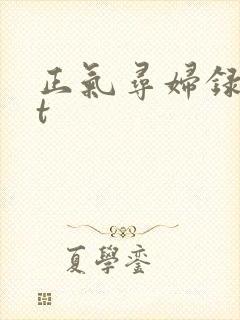 正氣尋婦録
t
夏學鑾